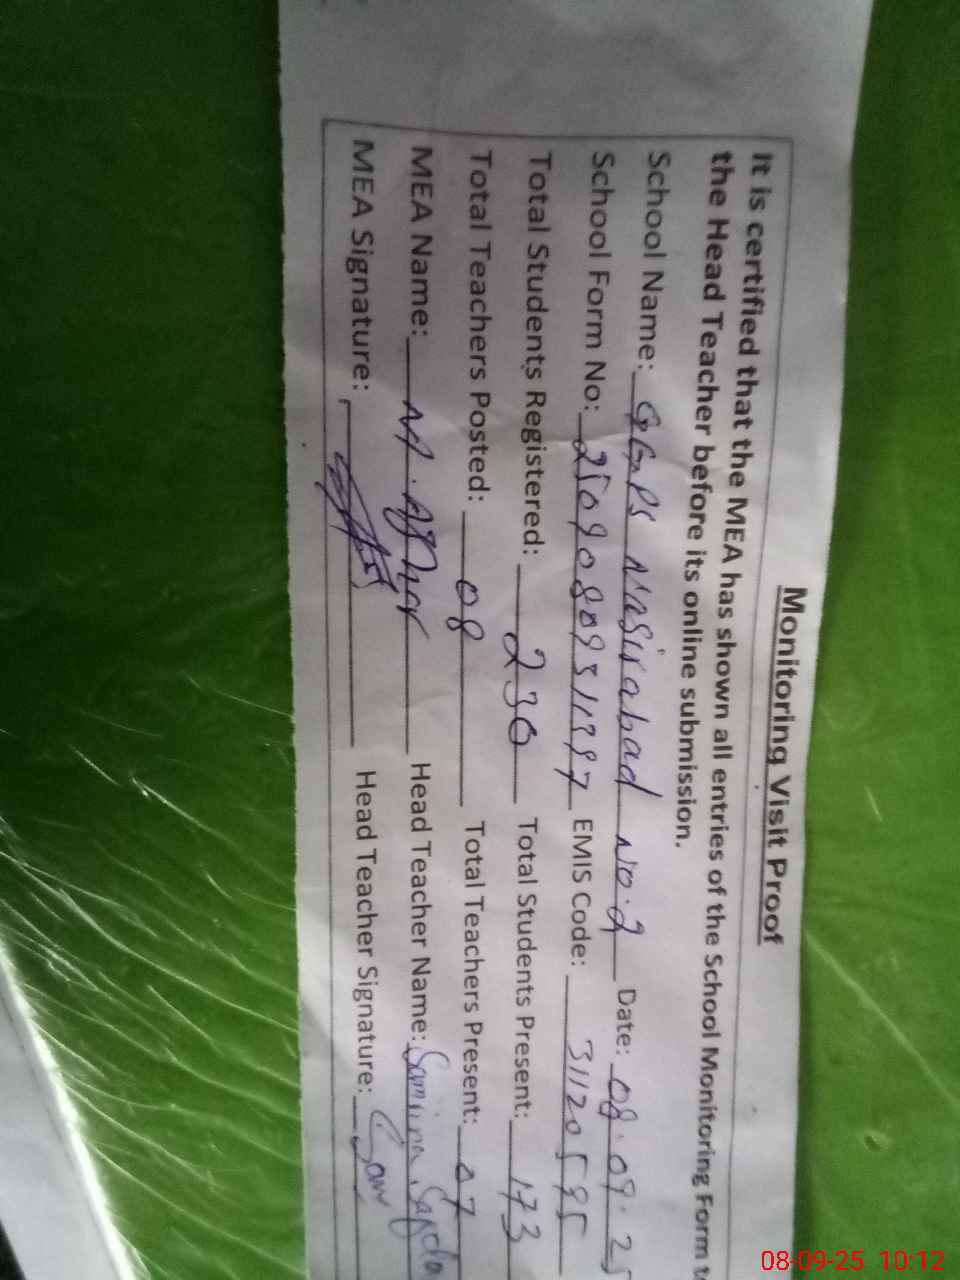 Monitoring Visit Proof
It is certified that the MEA has shown all entries of the School Monitoring Form t
the Head Teacher before its online submission.
School Name: GGPS Nasirabad No.2 Date: 08.09.25
School Form No: EMIS Code: 31120595
Total Students Registered: 236 Total Students Present: 173
Total Teachers Posted: 08 Total Teachers Present: 07
MEA Name: M. Head Teacher Name: Samina
MEA Signature: Head Teacher Signature: Sam
08-09-25 10:12